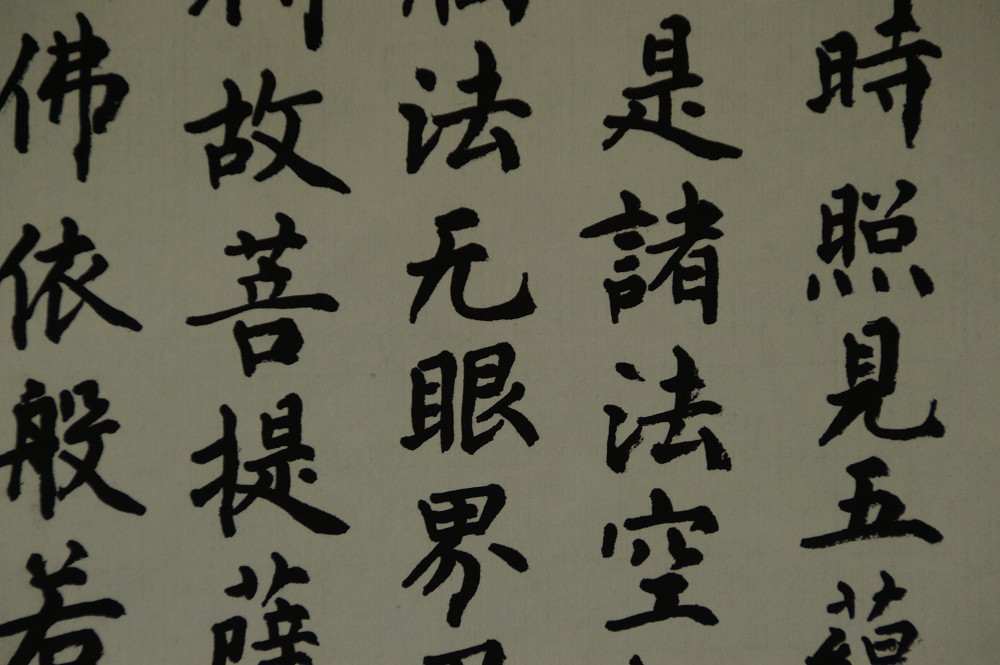 時照見五蘊
是諸法空
法无眼界
故菩提薩
佛依般若